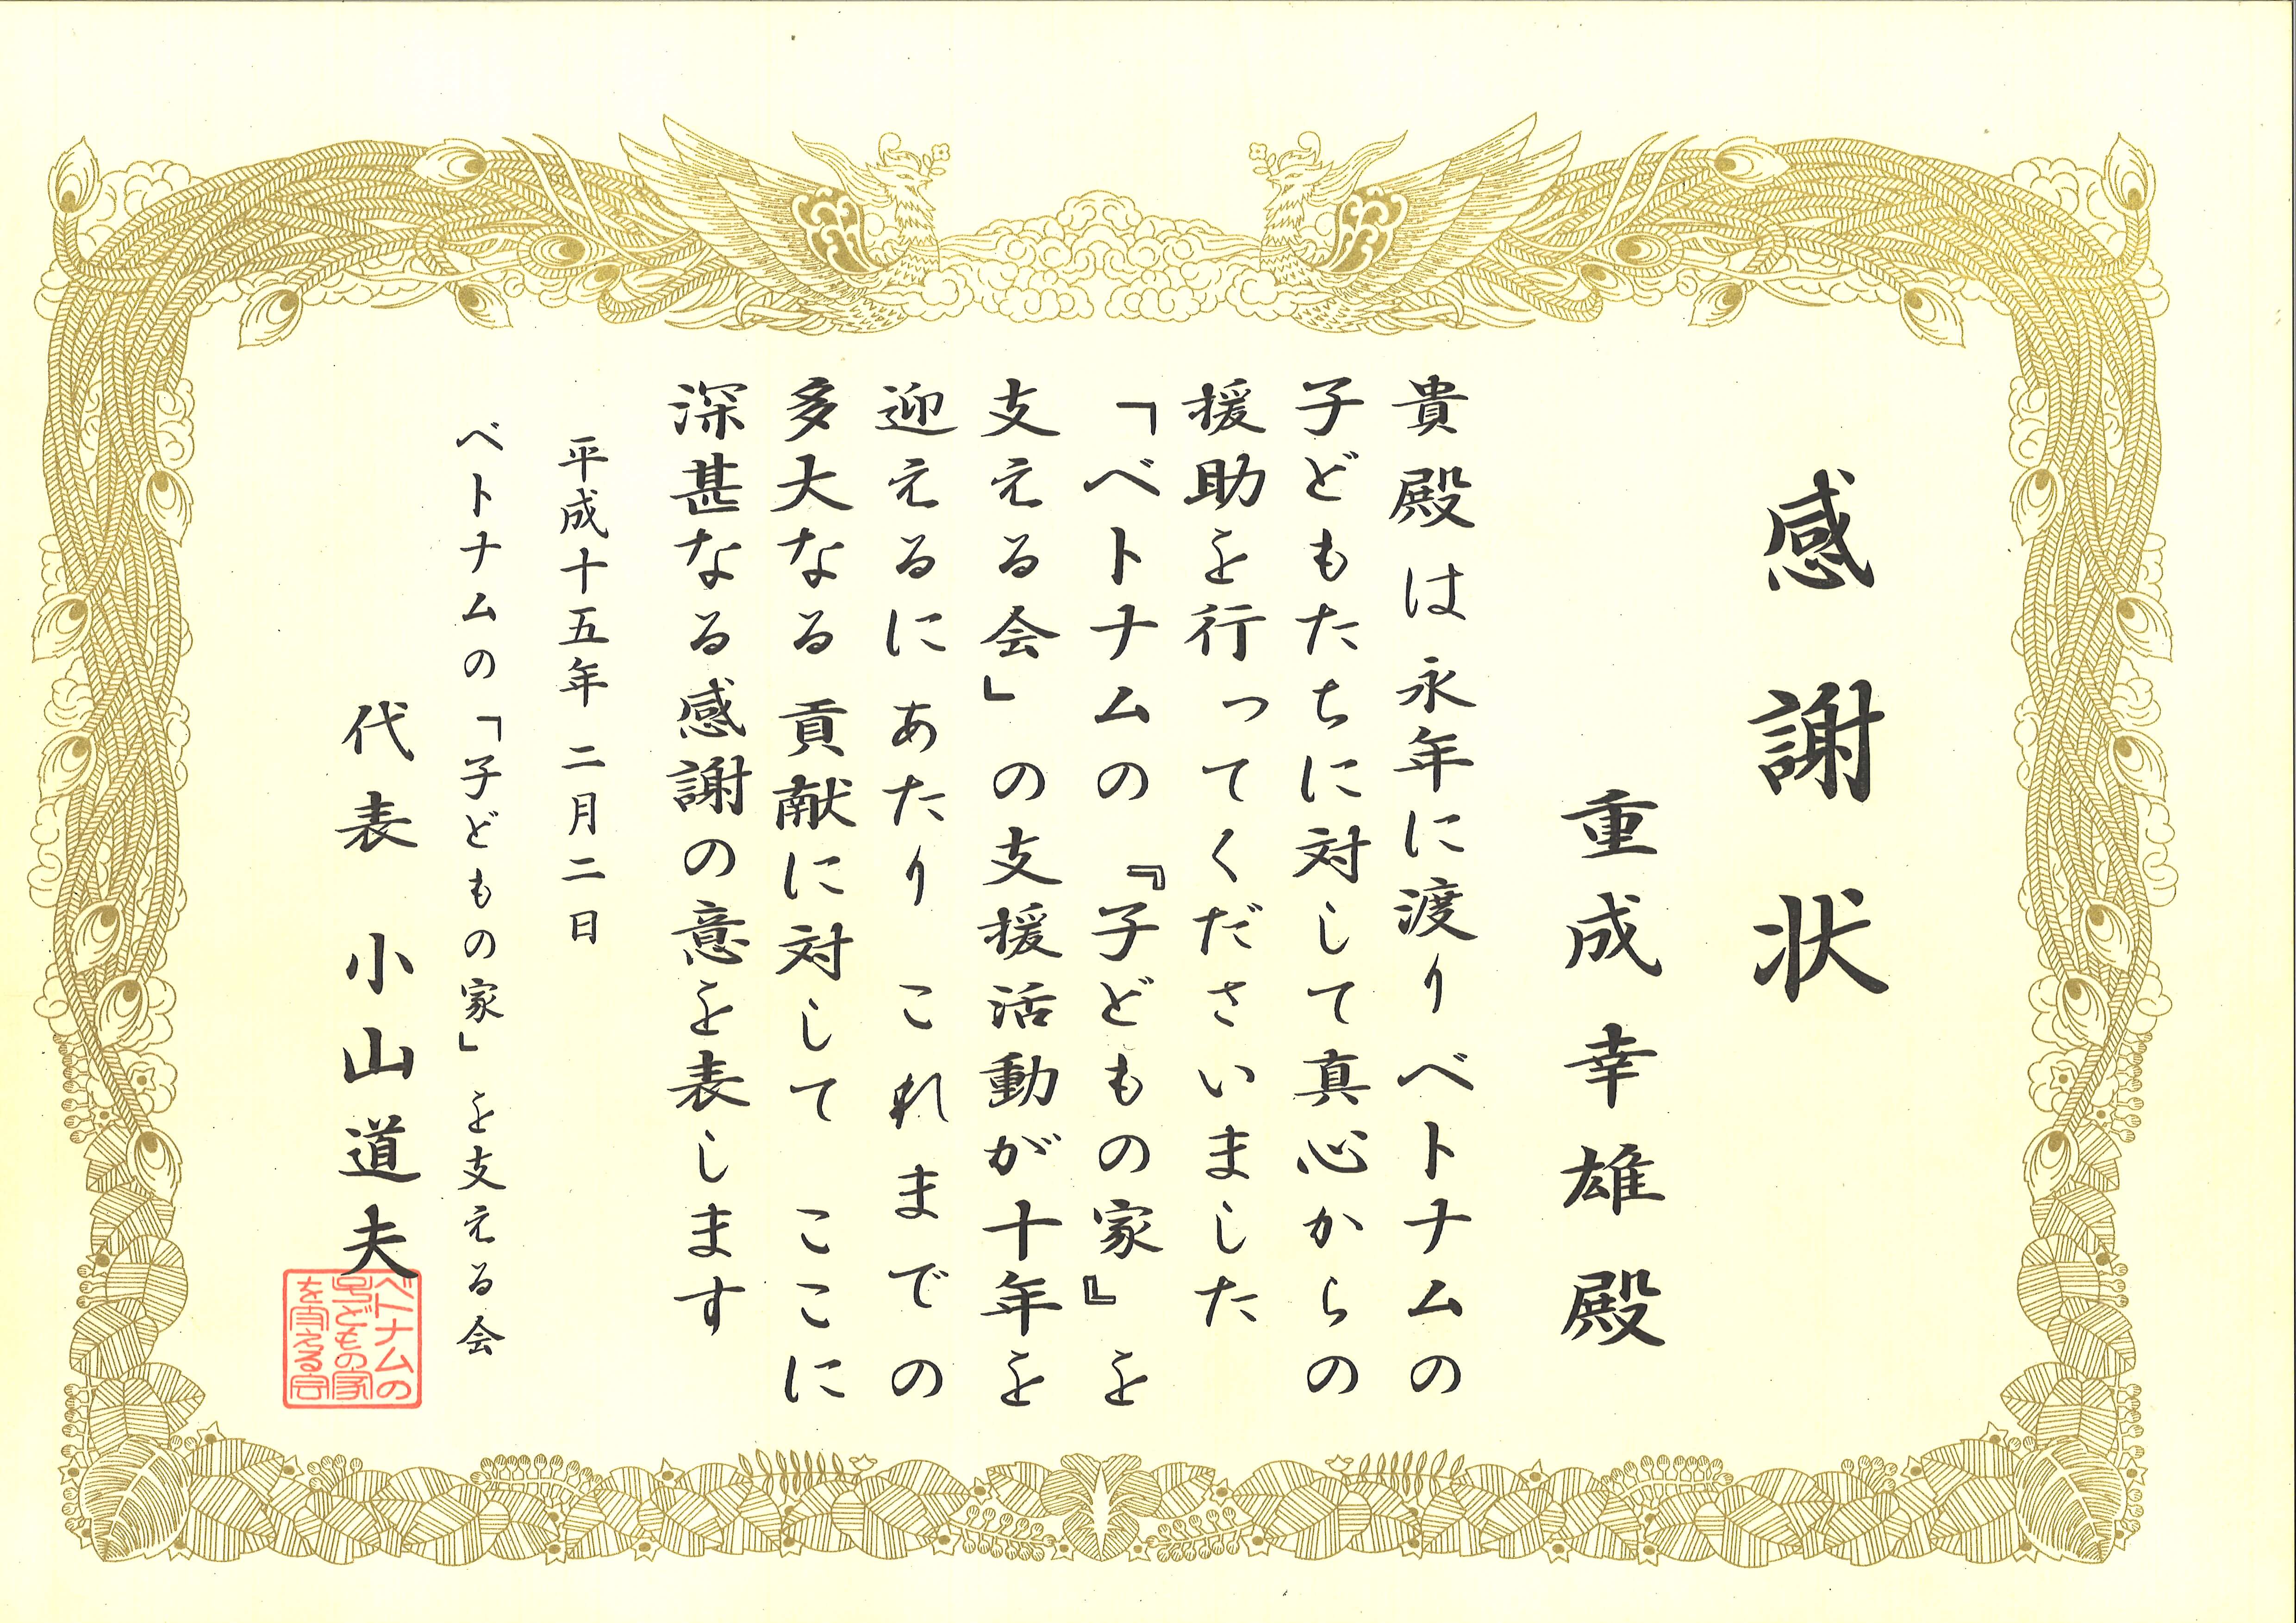 感謝状
重成幸雄殿
貴殿は永年に渡りベトナムの
子どもたちに対して真心からの
援助を行ってくださいました
「ベトナムの『子どもの家』を
支える会」の支援活動が十年を
迎えるにあたり これまでの
多大なる貢献に対して ここに
深甚なる感謝の意を表します
平成十五年 二月二日
ベトナムの「子どもの家」を支える会
代表 小山道夫
ベトナムの
子どもの家
を支える会